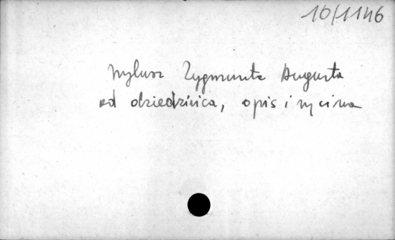 10/1146
wylusz Zygmunta Augusta
od dziedzińca, opis i rycina